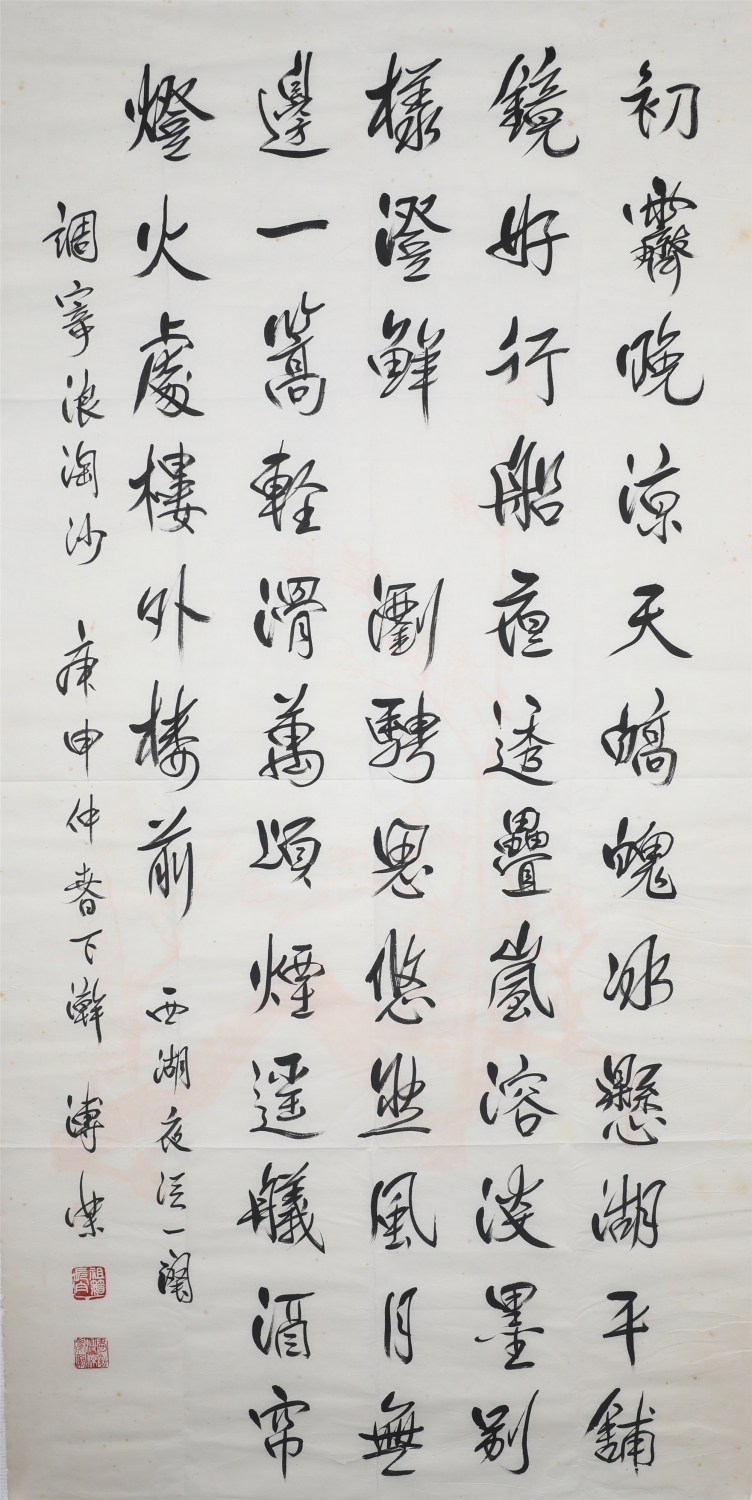 初霽晚涼天皜魄冰懸湖平鋪
鏡好行船亱透疊嵐溶淡墨別
樣澄鮮 瀏騁思悠然風月無
邊一篙軽滑萬頃煙遥艤酒帘
燈火處樓外楼前 西湖夜泛一闋
調寄浪淘沙 庚申仲春下澣 溥傑